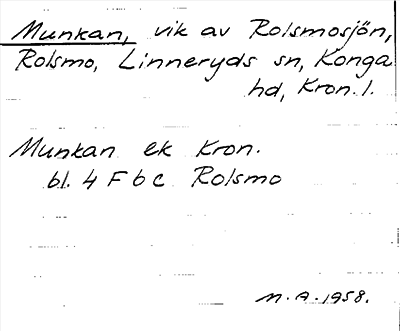 Munkan, vik av Rolsmosjön,
Rolsmo, Linneryds sn, Konga
hd, Kron. l.
Munkan ek Kron.
bl. 4 F b c Rolsmo
M. A. 1958.